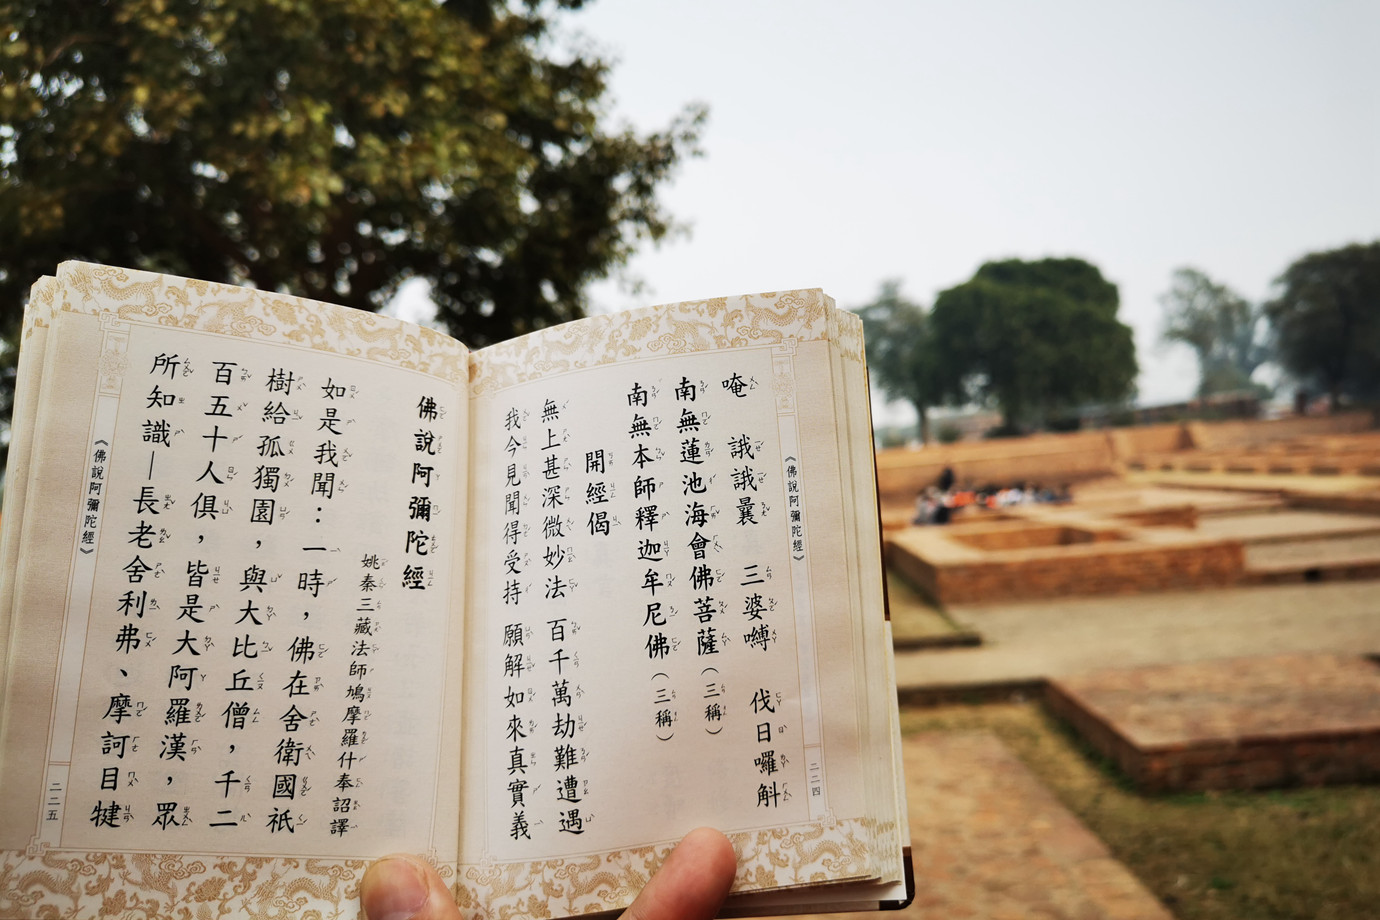 《佛說阿彌陀經》
二二四
唵　誐誐曩　三婆嚩　伐日囉斛
南無蓮池海會佛菩薩（三稱）
南無本師釋迦牟尼佛（三稱）
開經偈
無上甚深微妙法　百千萬劫難遭遇
我今見聞得受持　願解如來真實義
佛說阿彌陀經
姚秦三藏法師鳩摩羅什奉詔譯
如是我聞：一時，佛在舍衛國祇
樹給孤獨園，與大比丘僧，千二
百五十人俱，皆是大阿羅漢，眾
所知識—長老舍利弗、摩訶目犍
《佛說阿彌陀經》
二二五